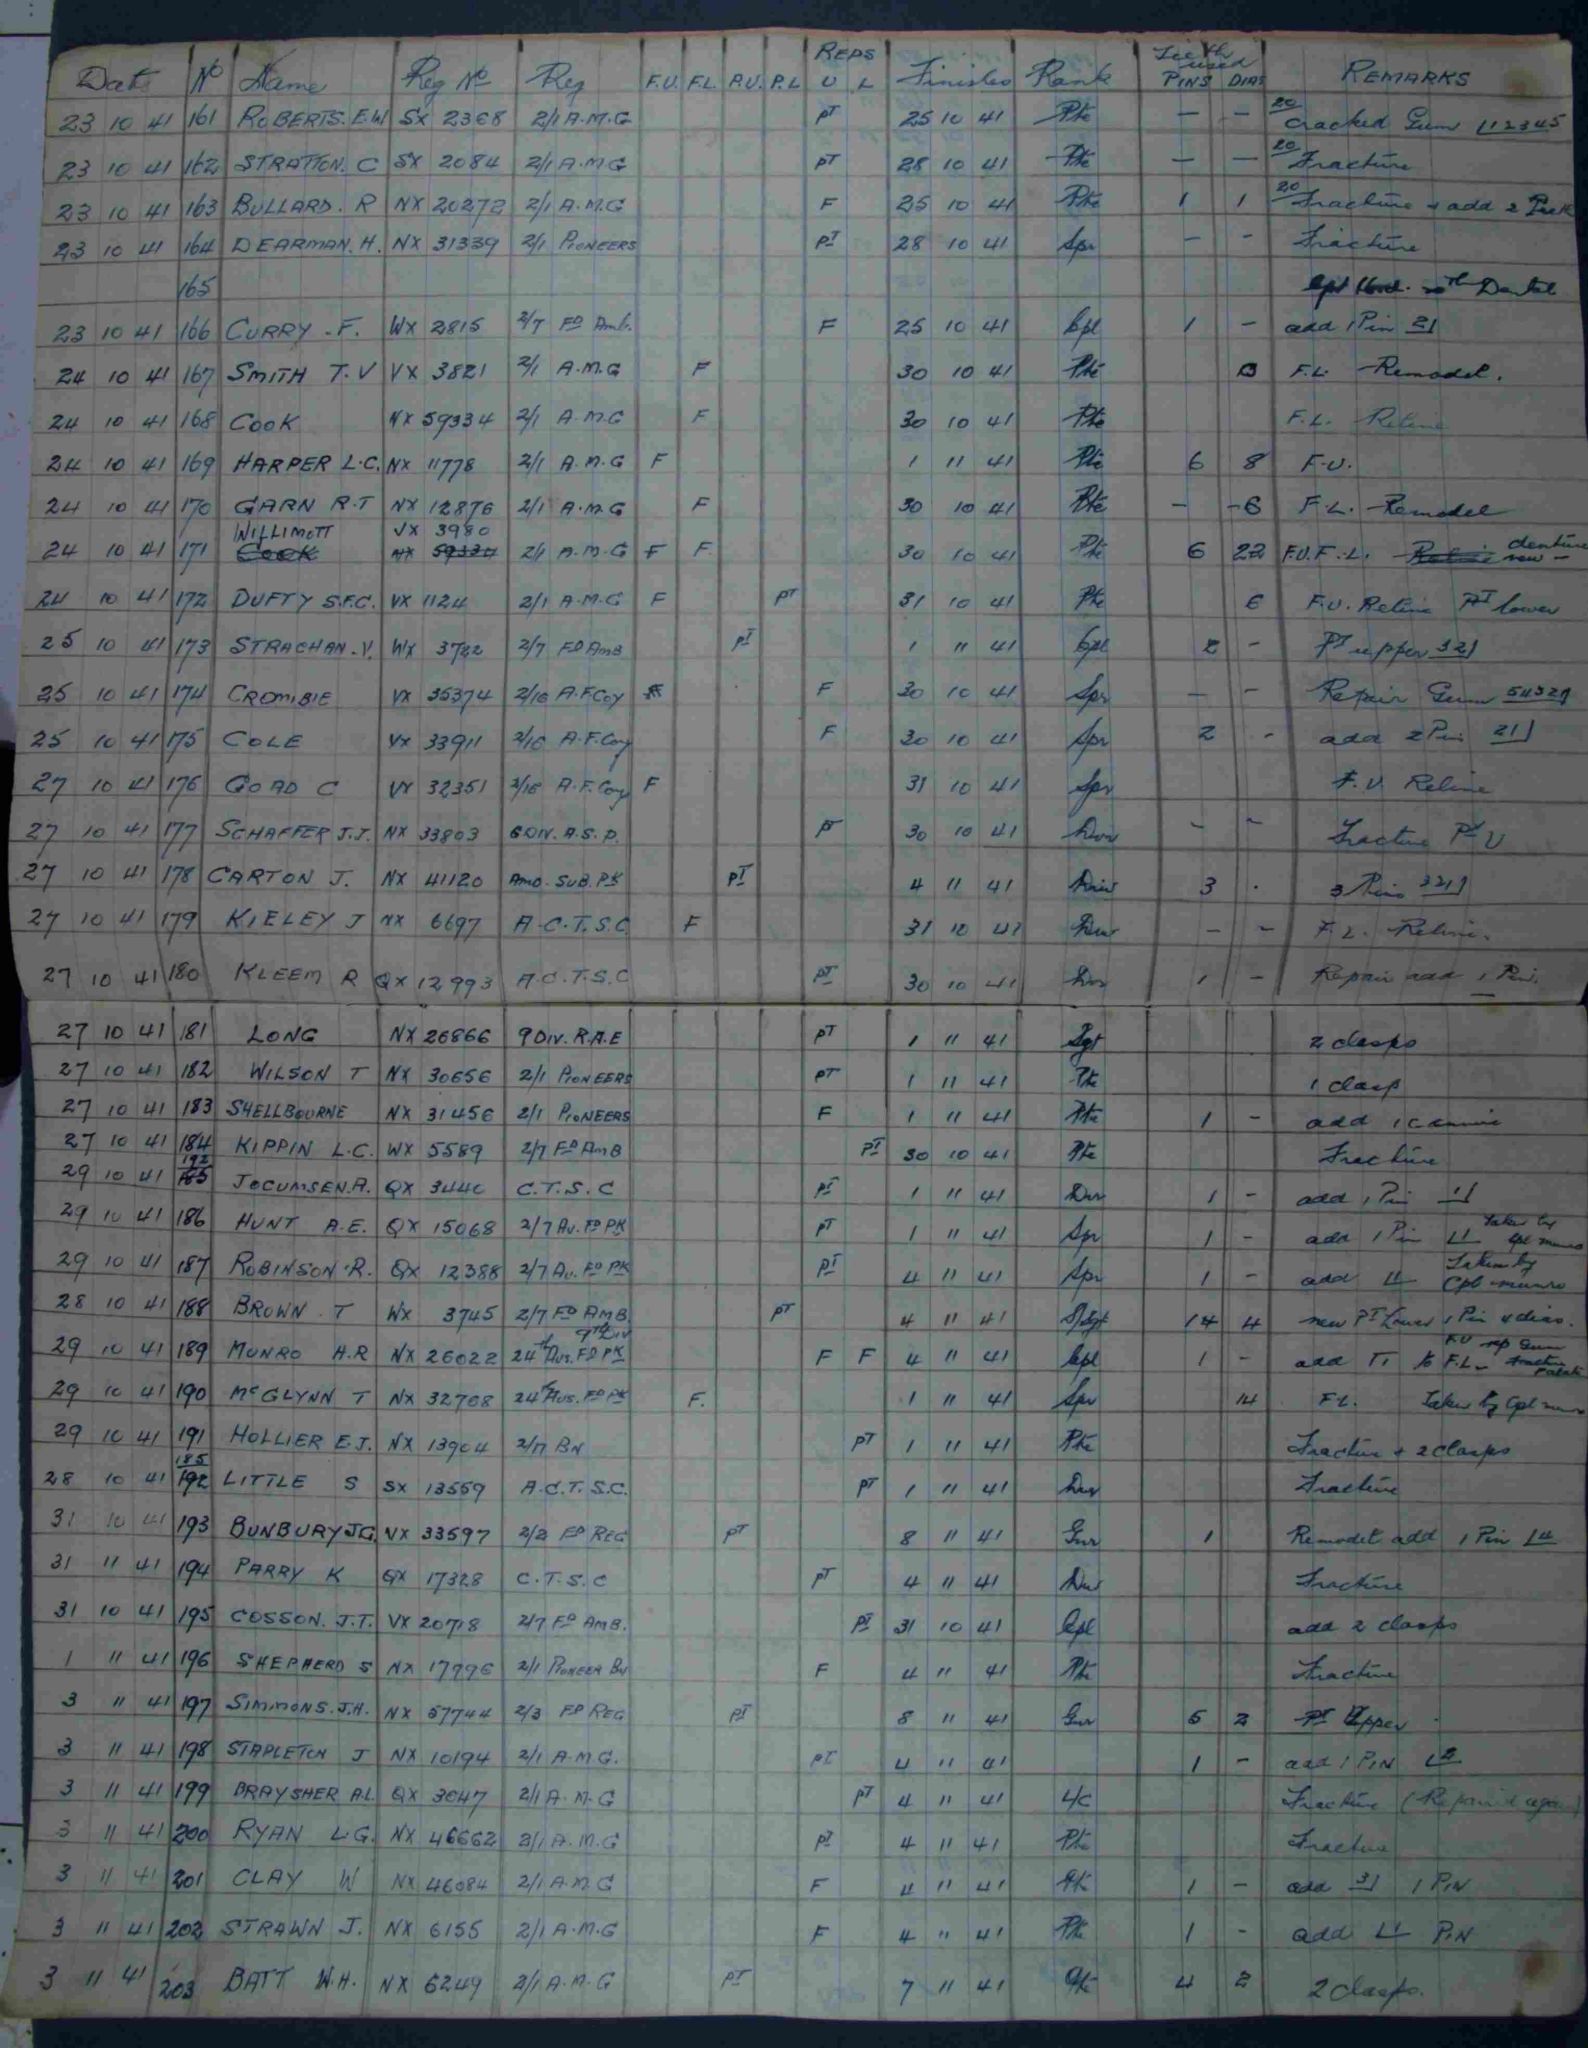 REPS Teeth used
Date No Name Reg No Reg F.U. F.L. P.U. P.L U L Finished Rank PINS DIAS REMARKS
23 10 41 161 ROBERTS. E.W SX 2368 2/1 A.M.G PT 25 10 41 Pte — — 20 Cracked Gum 12345
23 10 41 162 STRATTON. C SX 2084 2/1 A.M.G PT 28 10 41 Pte — — 20 Fracture
23 10 41 163 BULLARD. R NX 20272 2/1 A.M.G F 25 10 41 Pte 1 1 20 Fracture + add 2
23 10 41 164 DEARMAN. H. NX 31339 2/1 PIONEERS PT 28 10 41 Spr - - Fracture
165 Dental
23 10 41 166 CURRY - F. WX 2815 2/7 FD Amb. F 25 10 41 Cpl 1 - add 1 Pin 21
24 10 41 167 SMITH T.V VX 3821 2/1 A.M.G F 30 10 41 Pte F.L. Remodel.
24 10 41 168 COOK NX 59334 2/1 A.M.G F 30 10 41 Pte F.L. Reline
24 10 41 169 HARPER L.C. NX 11778 2/1 A.M.G F 1 11 41 Pte 6 8 F.U.
24 10 41 170 GARN R.T NX 12876 2/1 A.M.G F 30 10 41 Pte - -6 F.L. Remodel
WILLIMOTT VX 3980
24 10 41 171 COOK NX 59334 2/1 A.M.G F F 30 10 41 Pte 6 22 F.U.F.L. Reline denture new
24 10 41 172 DUFTY S.F.C. VX 1124 2/1 A.M.G F PT 31 10 41 Pte 6 F.U. Reline PT lower
25 10 41 173 STRACHAN. V. WX 3722 2/7 FD AMB PT 1 11 41 Cpl 2 - PT upper 321
25 10 41 174 CROMBIE VX 35374 2/16 A.F.Coy F 30 10 41 Spr — - Repair Gum 54321
25 10 41 175 COLE VX 33911 2/16 A.F.Coy F 30 10 41 Spr 2 - add 2 Pin 21
27 10 41 176 GOAD C VX 32351 2/16 A.F.Coy F 31 10 41 Spr F.U Reline
27 10 41 177 SCHAFFER J.J. NX 33803 6 DIV. A.S.P. PT 30 10 41 Dvr - - Fracture PT U
27 10 41 178 CARTON J. NX 41120 AMD. SUB. PK PT 4 11 41 Driv 3 . 3 Pins 321
27 10 41 179 KIELEY J NX 6697 A.C.T.S.C F 31 10 41 Dvr - - F.L. Reline.
27 10 41 180 KLEEM R QX 12993 A.C.T.S.C PT 30 10 41 Dvr 1 - Repair add 1 Pin.
27 10 41 181 LONG NX 26866 9 DIV. R.A.E PT 1 11 41 Sgt 2 clasps
27 10 41 182 WILSON T NX 30656 2/1 PIONEERS PT 1 11 41 Pte 1 clasp
27 10 41 183 SHELLBOURNE NX 31456 2/1 PIONEERS F 1 11 41 Pte 1 - add 1 canine
27 10 41 184 KIPPIN L.C. WX 5589 2/7 FD AMB PT 30 10 41 Pte Fracture
29 10 41 192 185 JOCUMSEN. A. QX 3440 C.T.S.C PT 1 11 41 Dvr 1 - add 1 Pin 1
29 10 41 186 HUNT A.E. QX 15068 2/7 AU. FD PK PT 1 11 41 Spr 1 - add 1 Pin 1 Taken by Cpl Munro
29 10 41 187 ROBINSON. R. QX 12388 2/7 AU. FD PK PT 4 11 41 Spr 1 - add 1 Taken by Cpl Munro
28 10 41 188 BROWN. T WX 3745 2/7 FD AMB. PT 4 11 41 S/Sgt 14 4 new PT Lower 1 Pin 4 dias.
29 10 41 189 MUNRO H.R NX 26022 24th Aus. FD PK 9th Div F F 4 11 41 Cpl 1 - add 1 to F.L. F.U rep Gum fracture Palate
29 10 41 190 McGLYNN T NX 32768 24th Aus. FD PK F. 1 11 41 Spr 14 F.L. Taken by Cpl Munro
29 10 41 191 HOLLIER E.J. NX 13904 2/17 BN PT 1 11 41 Pte Fracture + 2 Clasps
28 10 41 185 192 LITTLE S SX 13559 A.C.T.S.C. PT 1 11 41 Dvr Fracture
31 10 41 193 BUNBURY J.G. VX 33597 2/3 FD REG PT 8 11 41 Gnr 1 Remodel add 1 Pin 4
31 11 41 194 PARRY K QX 17328 C.T.S.C PT 4 11 41 Dvr Fracture
31 10 41 195 COSSON. J.T. VX 20718 2/7 FD AMB. PT 31 10 41 Cpl add 2 clasps
1 11 41 196 SHEPHERD S NX 17996 2/1 PIONEER BN F 4 11 41 Pte Fracture
3 11 41 197 SIMMONS. J.H. NX 57744 2/3 FD REG PT 8 11 41 Gnr 5 2 PT Upper
3 11 41 198 STAPLETON J NX 10194 2/1 A.M.G. PT 4 11 41 1 - add 1 PIN 2
3 11 41 199 BRAYSHER A.L. QX 3047 2/1 A.M.G PT 4 11 41 L/C Fracture (Repaired again)
3 11 41 200 RYAN L.G. NX 46662 2/1 A.M.G PT 4 11 41 Pte Fracture
3 11 41 201 CLAY W NX 46084 2/1 A.M.G F 4 11 41 Pte 1 - add 3 1 PIN
3 11 41 202 STRAWN J. NX 6155 2/1 A.M.G F 4 11 41 Pte 1 - add 1 PIN
3 11 41 203 BATT W.H. NX 6249 2/1 A.M.G PT 7 11 41 Pte 4 2 2 Clasps.